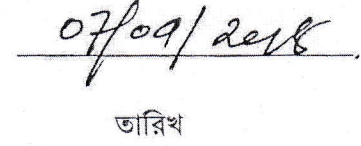 07/09/2018
তারিখ